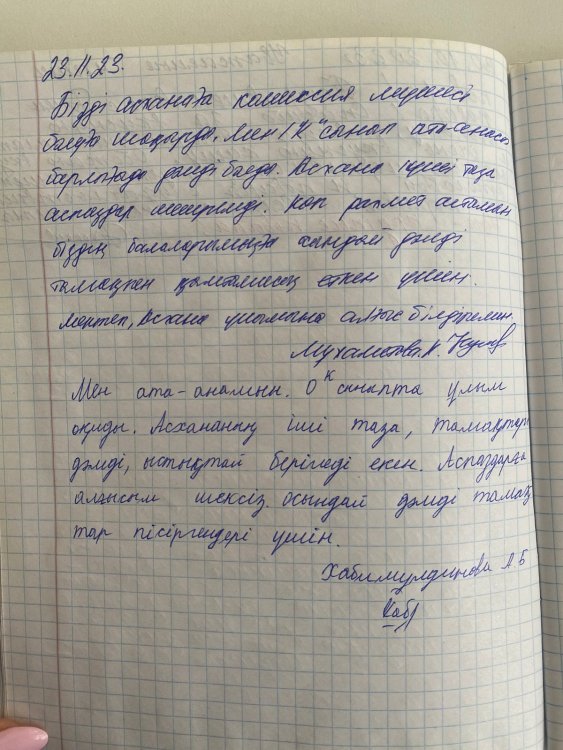 23.11.23.
Бізді асханада комиссия мүшесі
Мен 1 "К" сынып ата-анасы
барлығы дәмді Асхана іші таза
аспаздар мейірімді. Көп рахмет айтамын
біздің балаларымызға сондай дәмді
тамақпен қамтамасыз еткен үшін.
Мектеп, Асхана ұжымына алғыс білдіремін.
Мухаметова.К.
Мен ата-анамын. 0 К сыныпта ұлым
оқиды. Асхананың іші таза, тамақтары
дәмді, ыстықтай беріледі екен. Аспаздарға
алғысым шексіз осындай дәмді тамақ
тар пісіргендері үшін.
Хабимулдинова А.Б